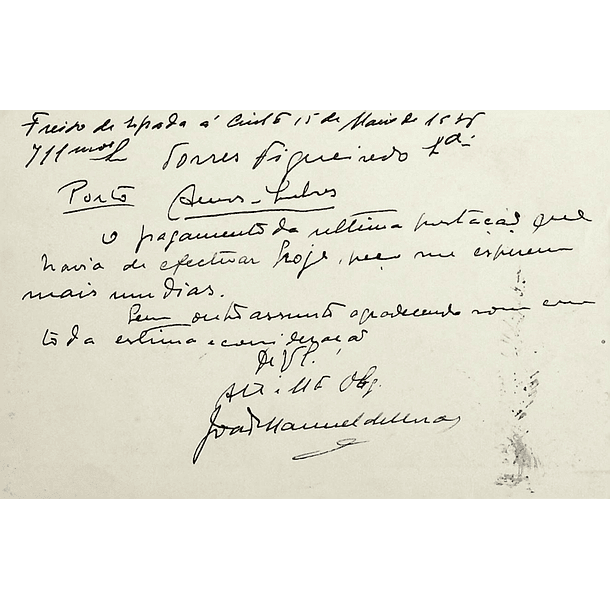 Freixo de Espada á Cinta 15 de Maio de
Torres Figueiredo Lda
Porto Amos
O pagamento da ultima prestação que
havia de efectuar hoje, peço me esperem
mais uns dias.
Sem outro assunto agradecendo sou com
toda estima e consideração
De V.
Att Mtº Obg.
João Manuel de